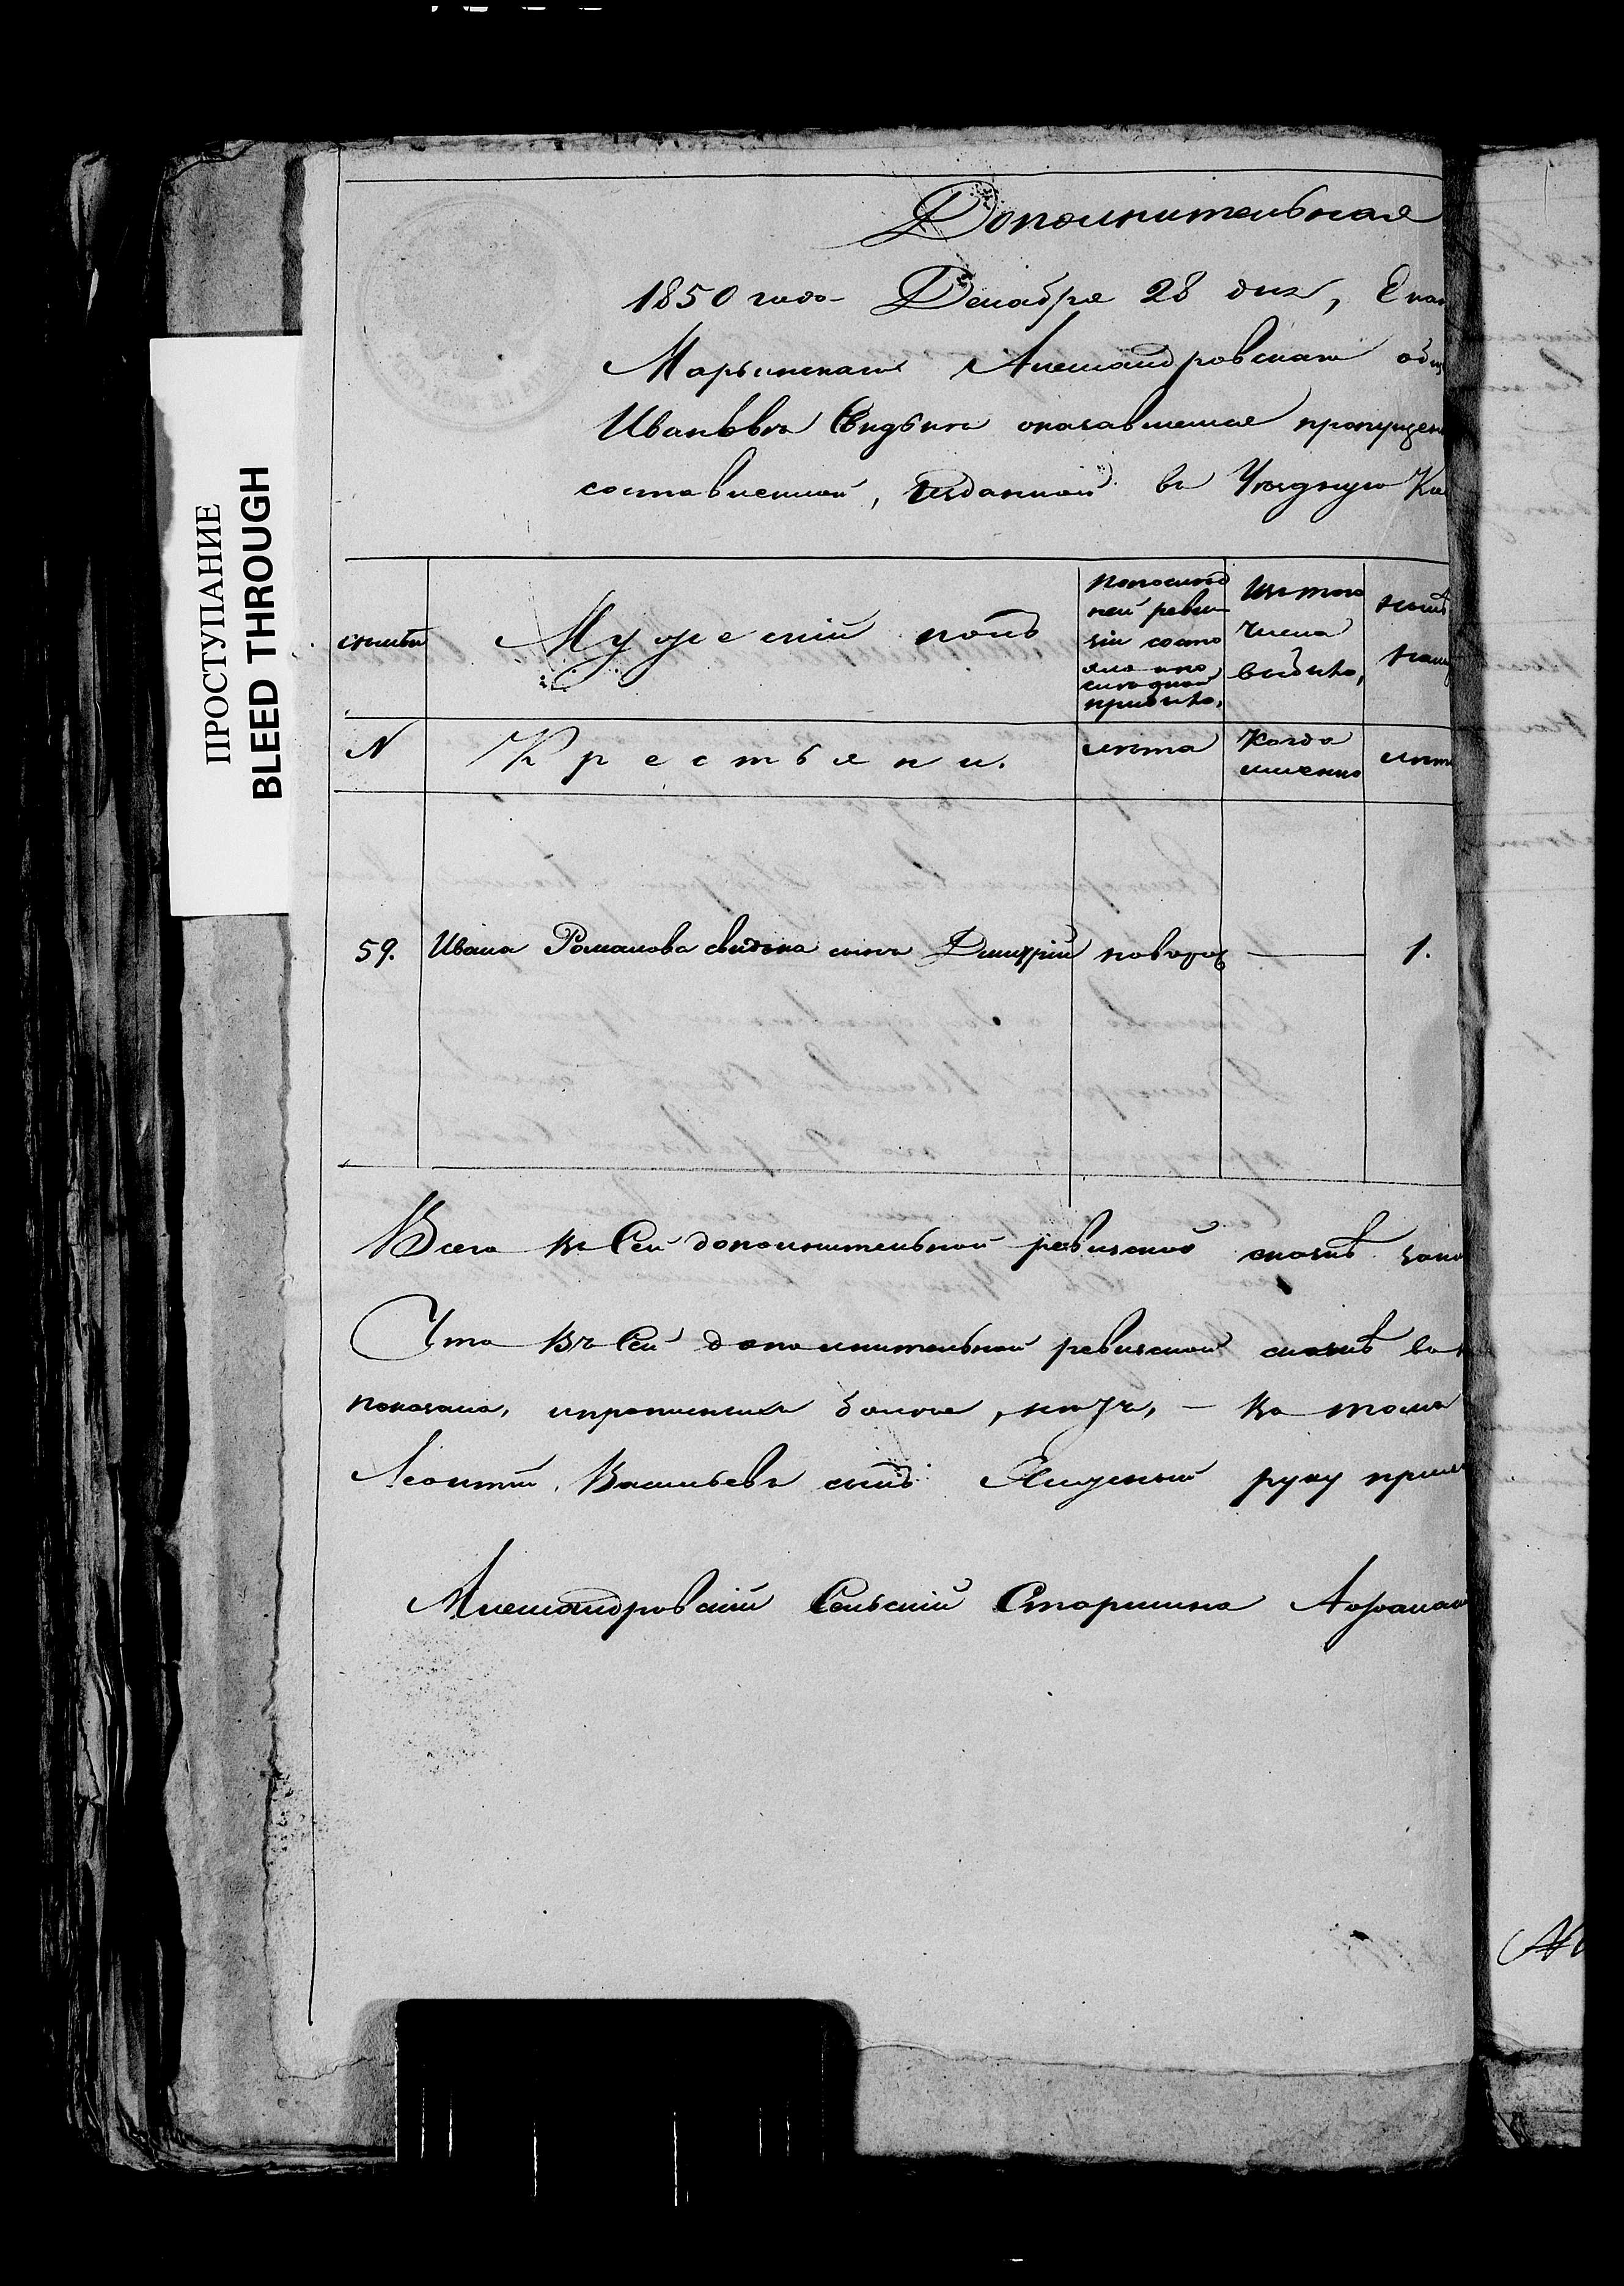 ПРОСТУПАНИЕ
BLEED THROUGH
Дополнительная
1850 года Декабря 28 дня, Екат
Марьинскаго Александровскаго общ
Ивановъ оказавшемся пропущен
составленной, в Уѣздную Ко
Мужескій полъ
По послѣд
ней реви
зіи состо
яло и по
слѣ оной
прибыло,
Изъ того
числа
выбыло,
№
Крестьяни.
лѣта
Когда
именно
лѣт
59. Ивана Романова свидена сынъ Димитрій новорож — 1.
Всего въ Сей дополнительной ревизской сказкѣ
Что въ Сей дополнительной ревизской сказкѣ
показано, и прописныхъ болѣе, нѣтъ, – въ томъ
Леонтій Васильевъ сынъ руку прил
Александровскій Сельскій Старшина